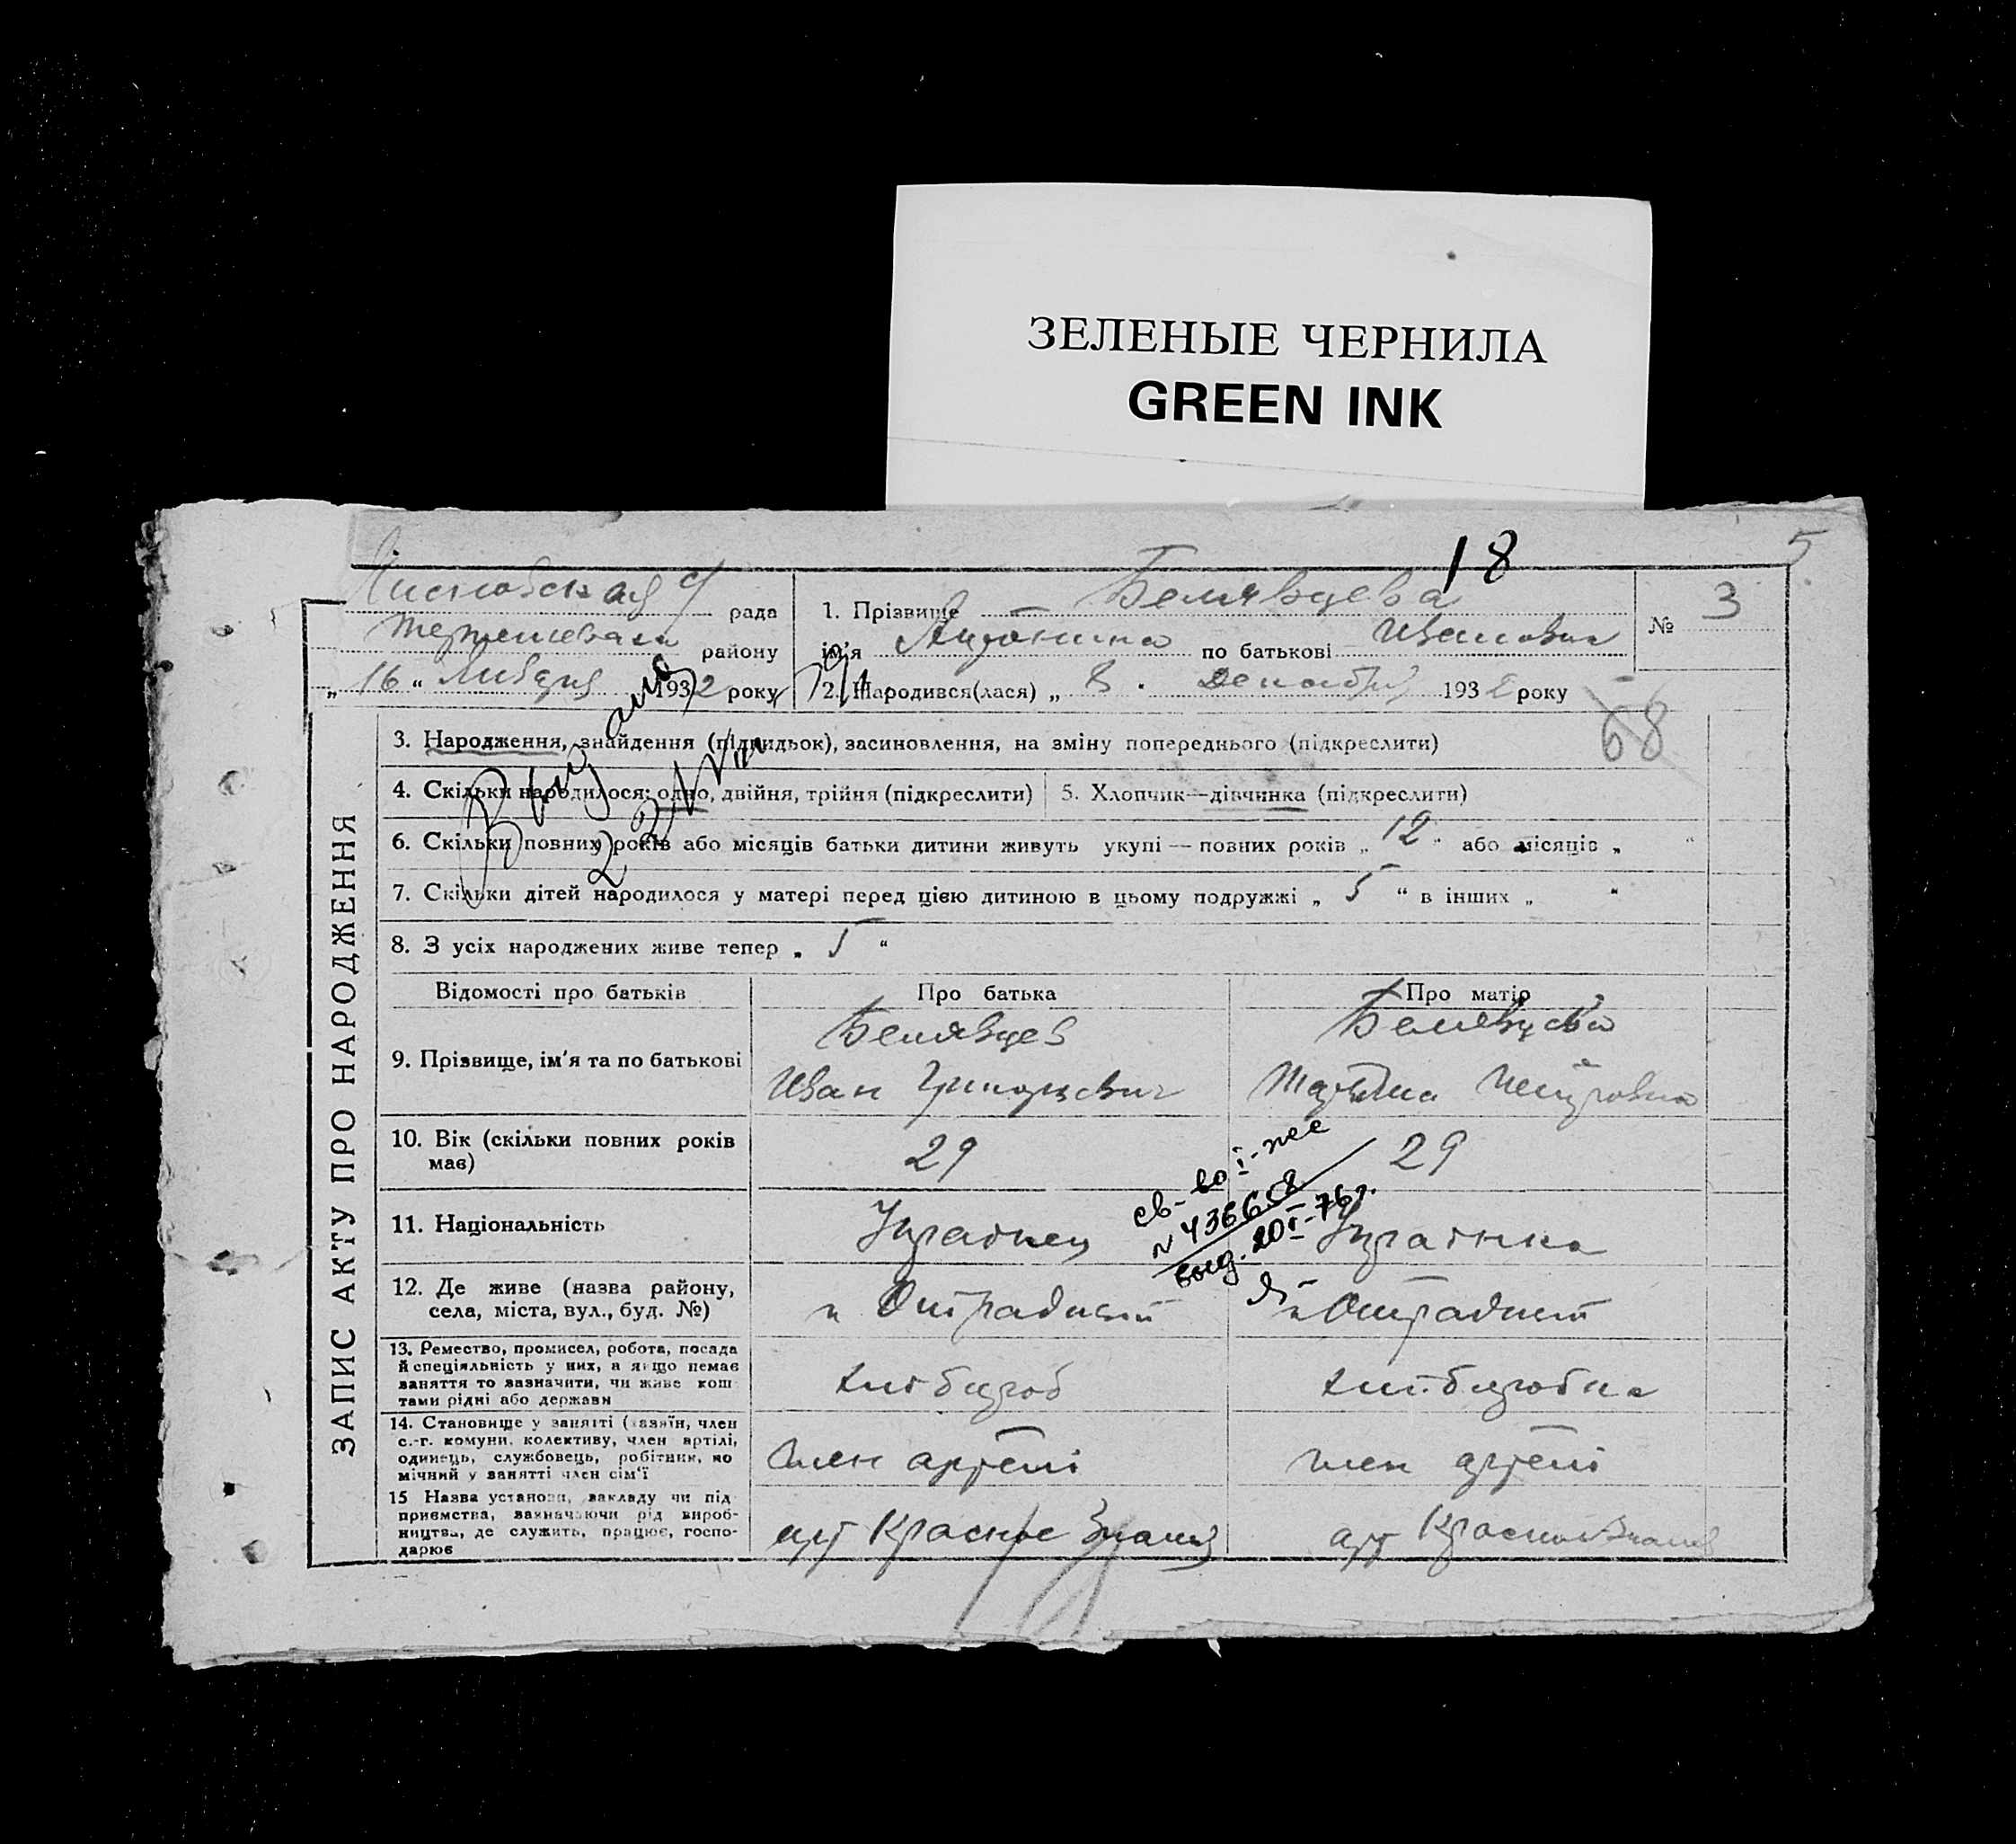 ЗЕЛЕНЫЕ ЧЕРНИЛА
GREEN INK
18
5
рада
району
„ 16 “ 1932 року
1. Прізвище Белявцева
ім'я Антонина по батькові Ивановна
2. Народився(лася) „ 8 . Декабря 193 року
№ 3
68
ЗАПИС АКТУ ПРО НАРОДЖЕННЯ
3. Народження, знайдення (підкидьок), засиновлення, на зміну попереднього (підкреслити)
4. Скільки народилося: одно, двійня, трійня (підкреслити)
5. Хлопчик—дівчинка (підкреслити)
6. Скільки повних років або місяців батьки дитини живуть укупі — повних років „ 12 “ або місяців „ “
7. Скільки дітей народилося у матері перед цією дитиною в цьому подружжі „ 5 “ в інших „ “
8. З усіх народжених живе тепер „ 5 “
Відомості про батьків
Про батька
Про матір
9. Прізвище, ім'я та по батькові
Белявцев
Иван Григорьевич
Белявцева
Петровна
10. Вік (скільки повних років
має)
29
29
св-во I-
N 436658
выд. 20 I-76г.
11. Національність
Украинец
Украинка
12. Де живе (назва району,
села, міста, вул., буд. №)
п Отрадный
п Отрадный
13. Ремество, промисел, робота, посада
й спеціяльність у них, а якщо немає
заняття то зазначити, чи живе кош
тами рідні або держави
хлібороб
хліборобка
14. Становище у занятті (хазяїн, член
с.-г. комуни, колективу, член артілі,
одинець, службовець, робітник, по
мічний у занятті член сім'ї
член артелі
член артелі
15 Назва установи, закладу чи під
приємства, зазначаючи рід вироб-
ництва, де служить, працює, госпо-
дарює
арт Красное Знамя
арт Красное Знамя